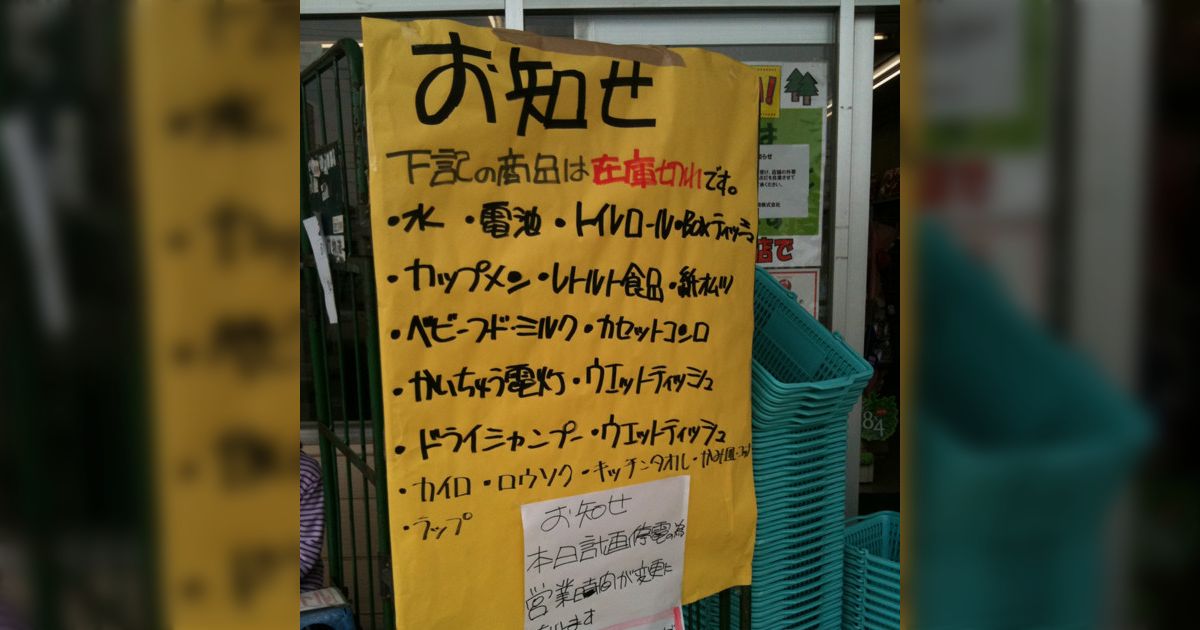 お知せ
下記の商品は在庫切れです。
・水 ・電池 ・トイレロール・Boxティッシュ
・カップメン・レトルト食品・紙オムツ
・ベビーフード・ミルク・カセットコンロ
・かいちゅう電灯・ウエットティッシュ
・ドライシャンプー・ウエットティッシュ
・カイロ・ロウソク・キッチンタオル・かみ皿・コップ
・ラップ
お知せ
本日計画停電の為
営業時間が変更に
なります
店で
84